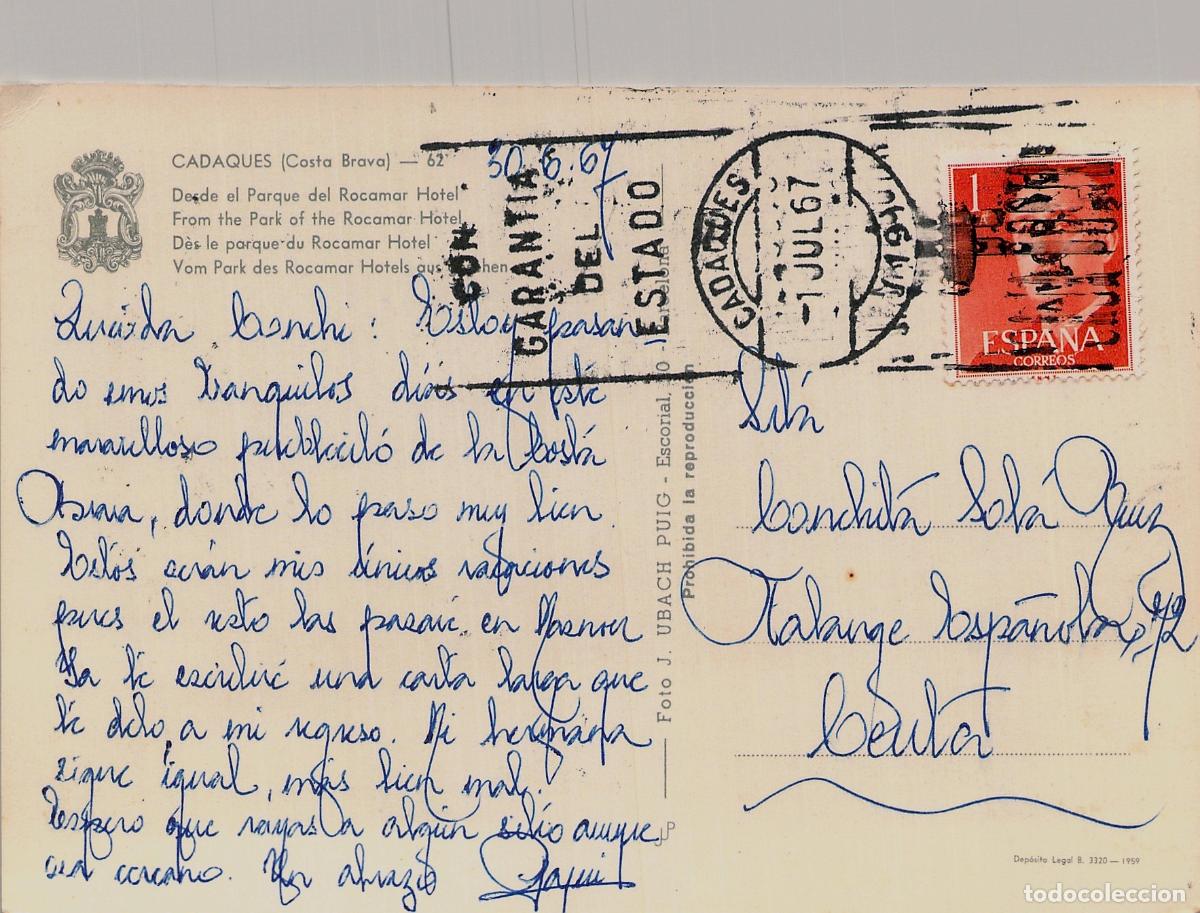 CADAQUES (Costa Brava) — 62
Desde el Parque del Rocamar Hotel
From the Park of the Rocamar Hotel
Dès le parque du Rocamar Hotel
Vom Park des Rocamar Hotels aus
30-6-67
CON
GARANTIA
DEL
ESTADO
CADAQUES
-1 JUL 67
1
ESPAÑA
CORREOS
Querida Conchi: Estoy pasan
do unos tranquilos días en este
maravilloso pueblecito de la Costa
Brava, donde lo paso muy bien.
Estos serán mis únicas vacaciones
pues el resto las pasaré en Masnou
Ya te escribiré una carta larga que
te debo, a mi regreso. Mi hermana
sigue igual, más bien mal.
Espero que vayas a algún sitio aunque
sea cercano. Un abrazo
Foto J. UBACH PUIG - Escorial,
Prohibida la reproducción
Srta
Conchita Solá Ruiz
Falange Española, 72
Ceuta
Depósito Legal B. 3320 — 1959
todocoleccion